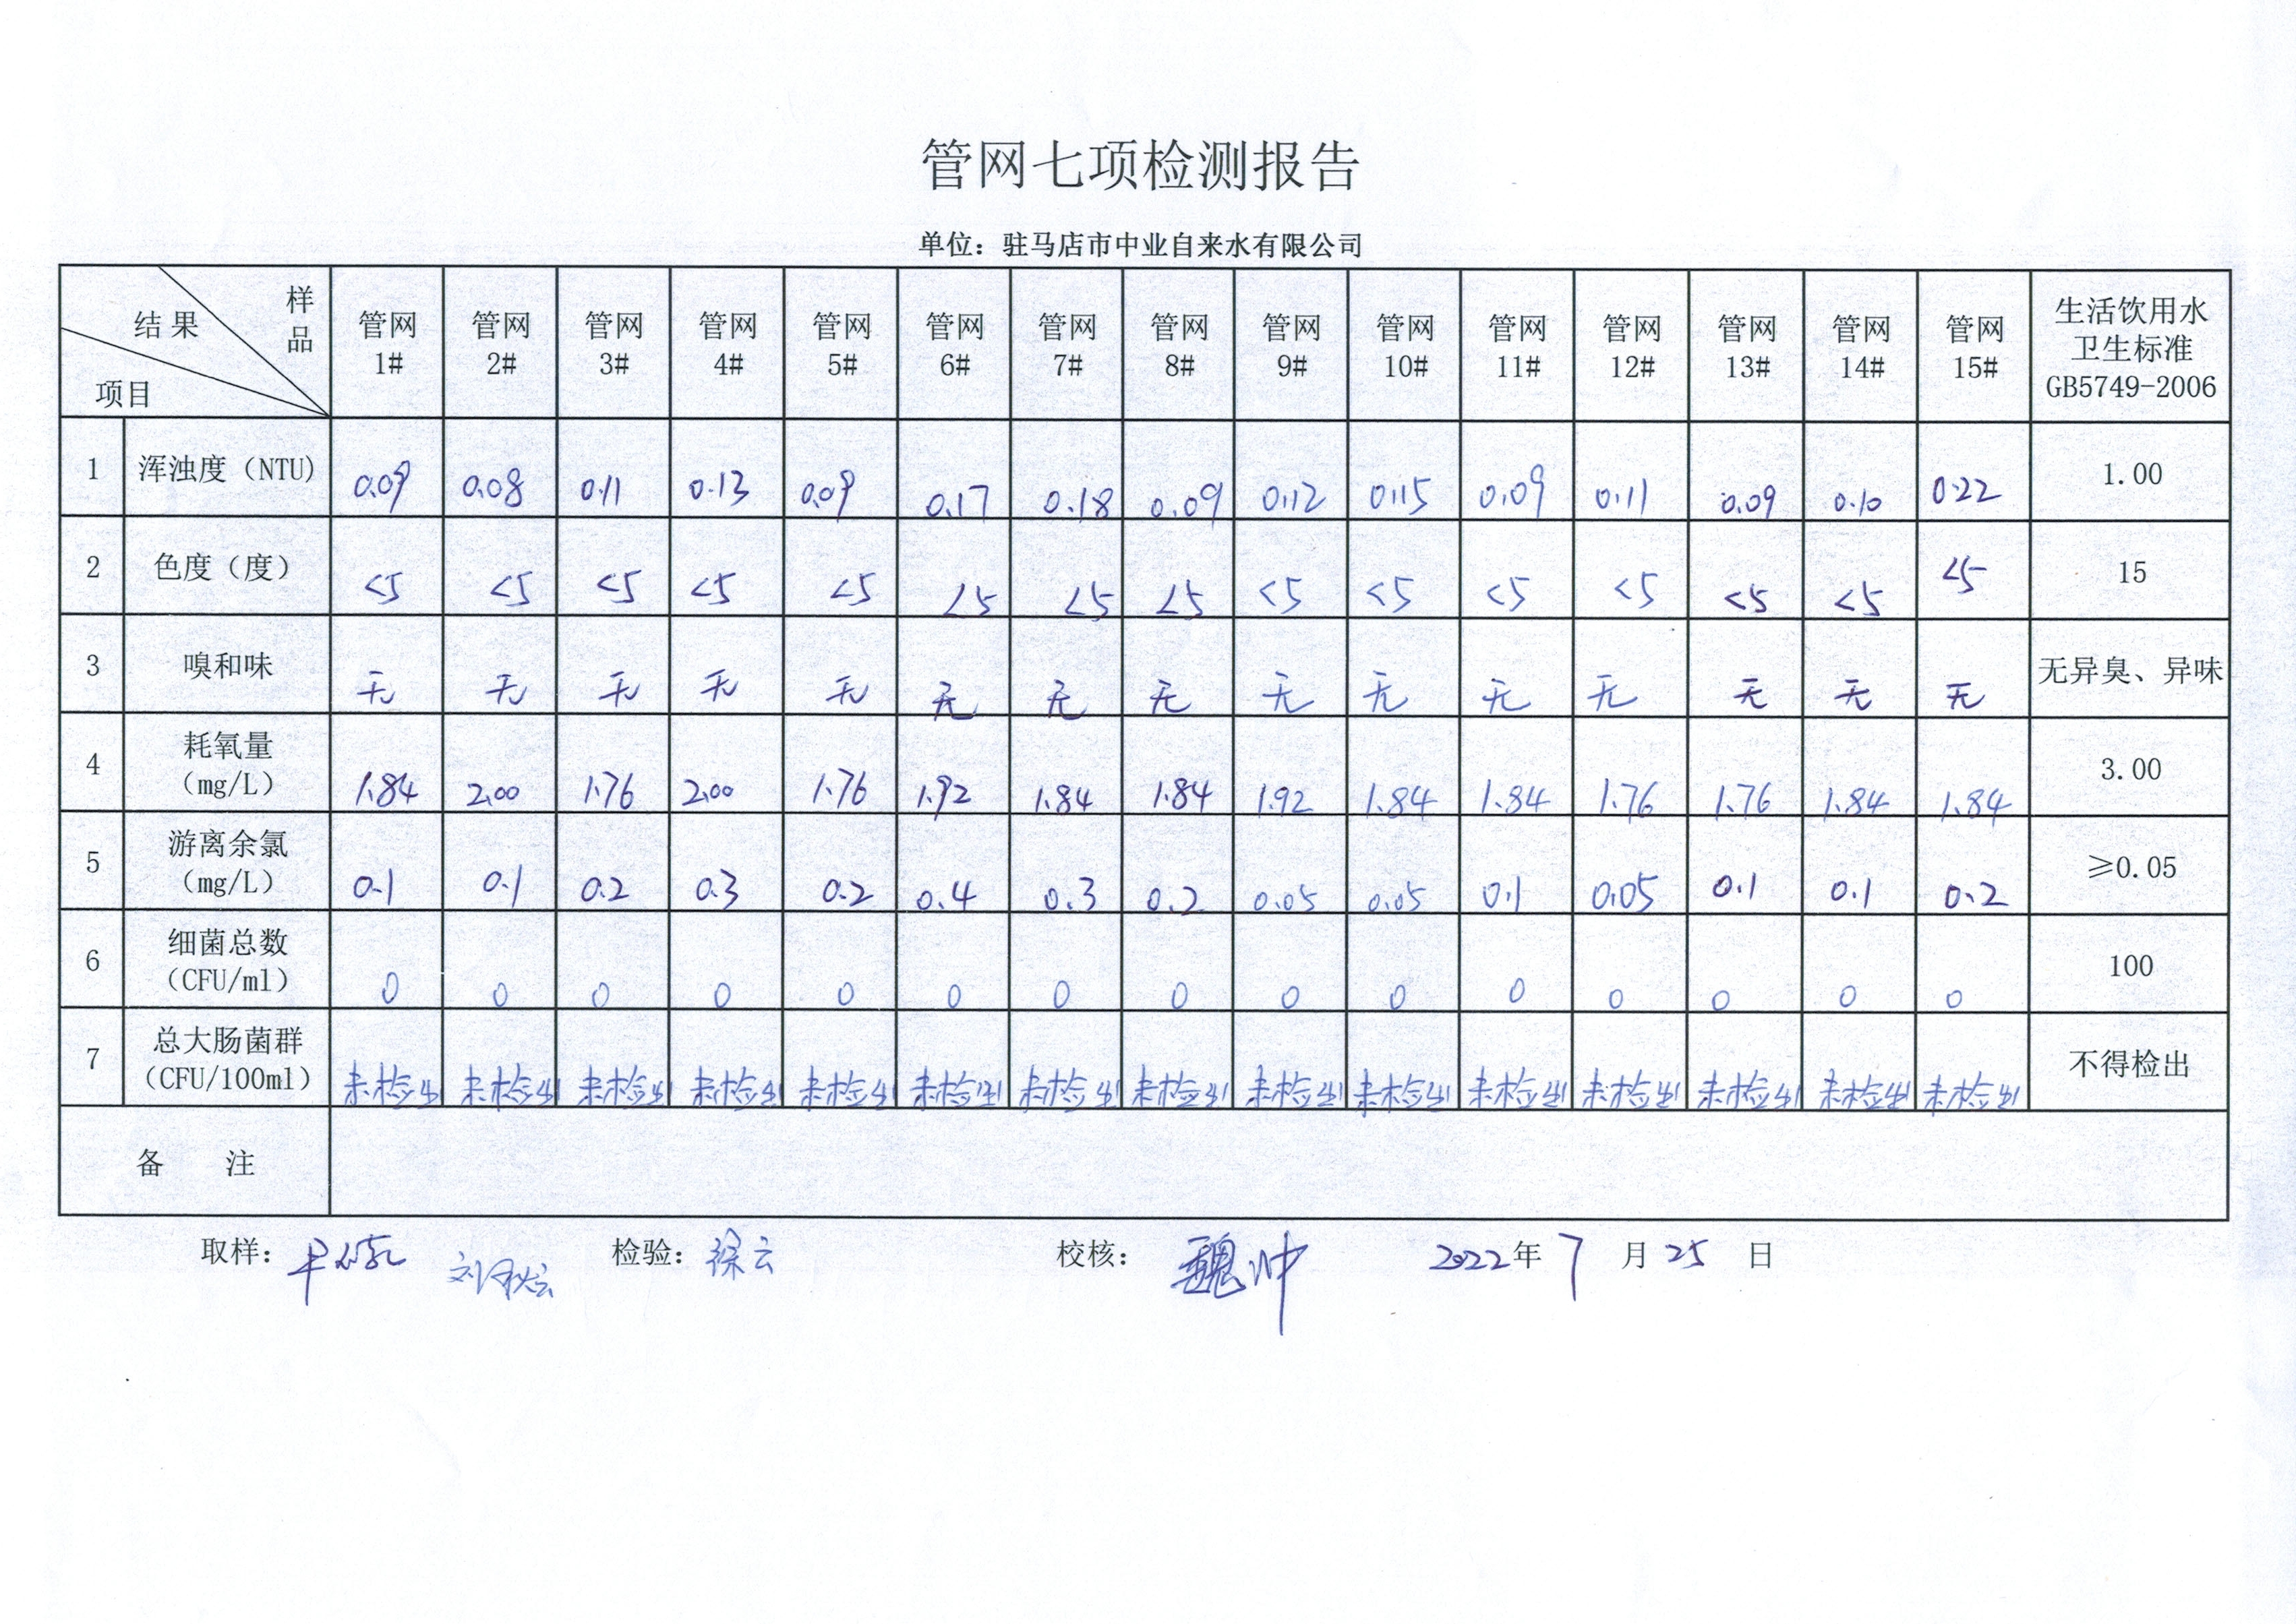 管网七项检测报告
单位：驻马店市中业自来水有限公司
结果 样品 项目 管网1# 管网2# 管网3# 管网4# 管网5# 管网6# 管网7# 管网8# 管网9# 管网10# 管网11# 管网12# 管网13# 管网14# 管网15# 生活饮用水卫生标准GB5749-2006
1 浑浊度（NTU) 0.09 0.08 0.11 0.13 0.09 0.17 0.18 0.09 0.12 0.15 0.09 0.11 0.09 0.10 0.22 1.00
2 色度（度） <5 <5 <5 <5 <5 <5 <5 <5 <5 <5 <5 <5 <5 <5 <5 15
3 嗅和味 无 无 无 无 无 无 无 无 无 无 无 无 无 无 无 无异臭、异味
4 耗氧量（mg/L） 1.84 2.00 1.76 2.00 1.76 1.92 1.84 1.84 1.92 1.84 1.84 1.76 1.76 1.84 1.84 3.00
5 游离余氯（mg/L） 0.1 0.1 0.2 0.3 0.2 0.4 0.3 0.2 0.05 0.05 0.1 0.05 0.1 0.1 0.2 ≥0.05
6 细菌总数（CFU/ml） 0 0 0 0 0 0 0 0 0 0 0 0 0 0 0 100
7 总大肠菌群（CFU/100ml） 未检出 未检出 未检出 未检出 未检出 未检出 未检出 未检出 未检出 未检出 未检出 未检出 未检出 未检出 未检出 不得检出
备 注
取样： 检验：徐云 校核：魏帅 2022年7月25日